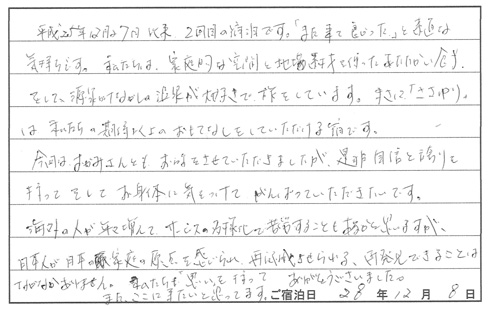 平成25年12月7日以来、2回目の宿泊です。「また来て良かった」と素直な
気持ちです。私たちは、家庭的な空間と地場素材を使ったあたたかい食事、
そして、源泉かけながしの温泉が大好きで、旅をしています。まさに「ささゆり」
は私たちの期待どおりのおもてなしをしていただける宿です。
今回はおかみさんともお話をさせていただきましたが、是非自信と誇りを
持って そして お身体に気をつけて がんばっていただきたいです。
海外の人が年々増えて、サービスの多様化で苦労することもあると思いますが、
日本人が日本の家庭の原点を感じられ、再認識させられる、再発見できることは
なかなかありません。私たちも思いを持って ありがとうございました。
また、ここに来たいと思ってます。ご宿泊日 28年12月8日